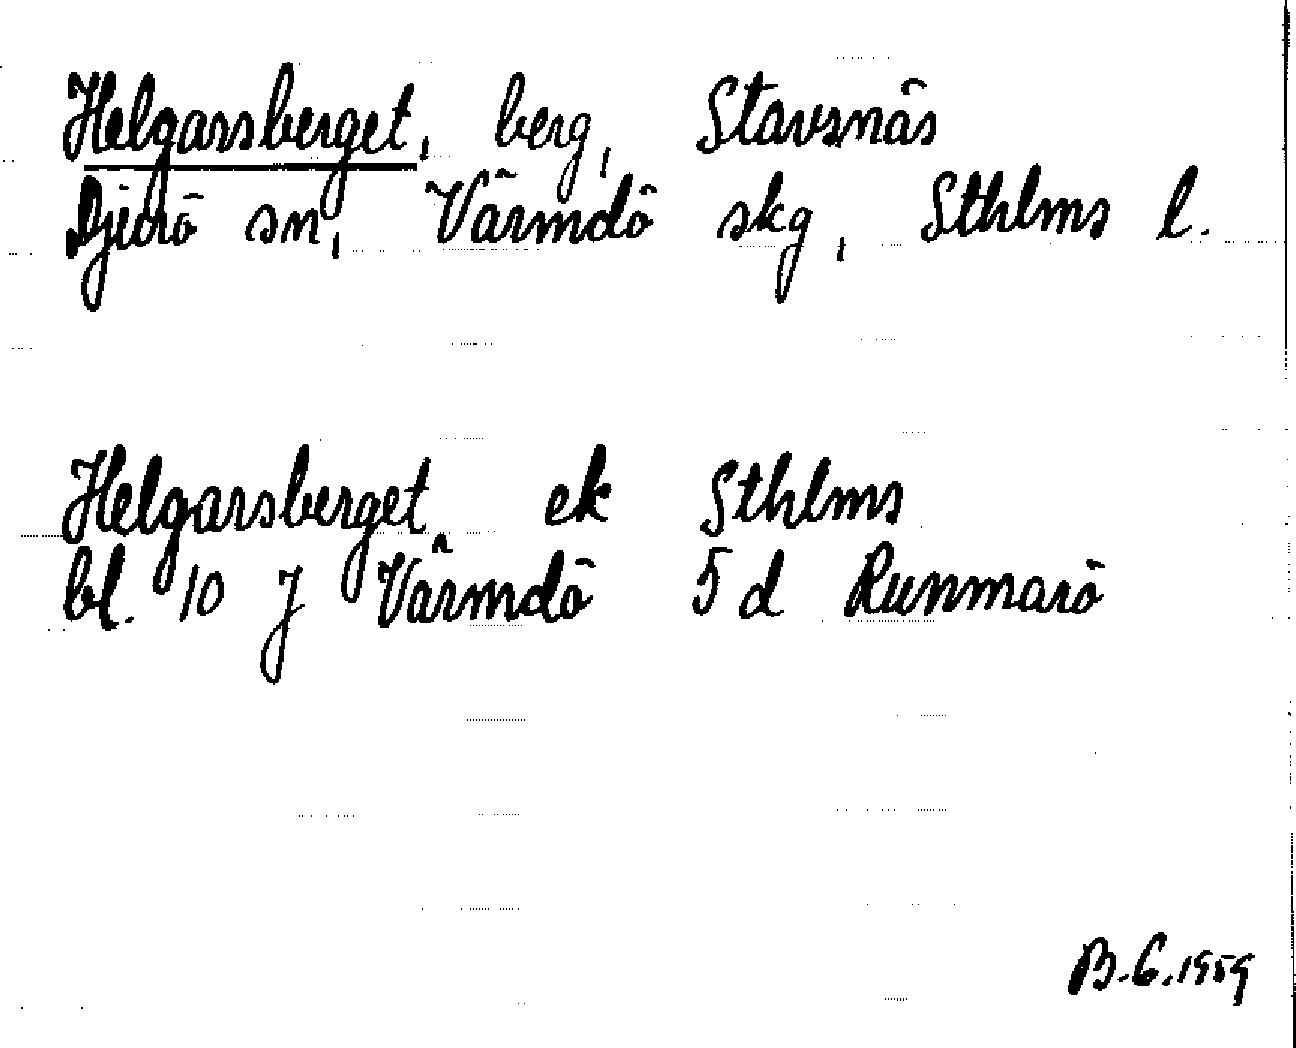 Helgarsberget, berg, Stavsnäs
Djurö sn, Värmdö skg, Sthlms l.
Helgarsberget ek Sthlms
bl. 10 J Värmdö 5 d Runmarö
B.G. 1959